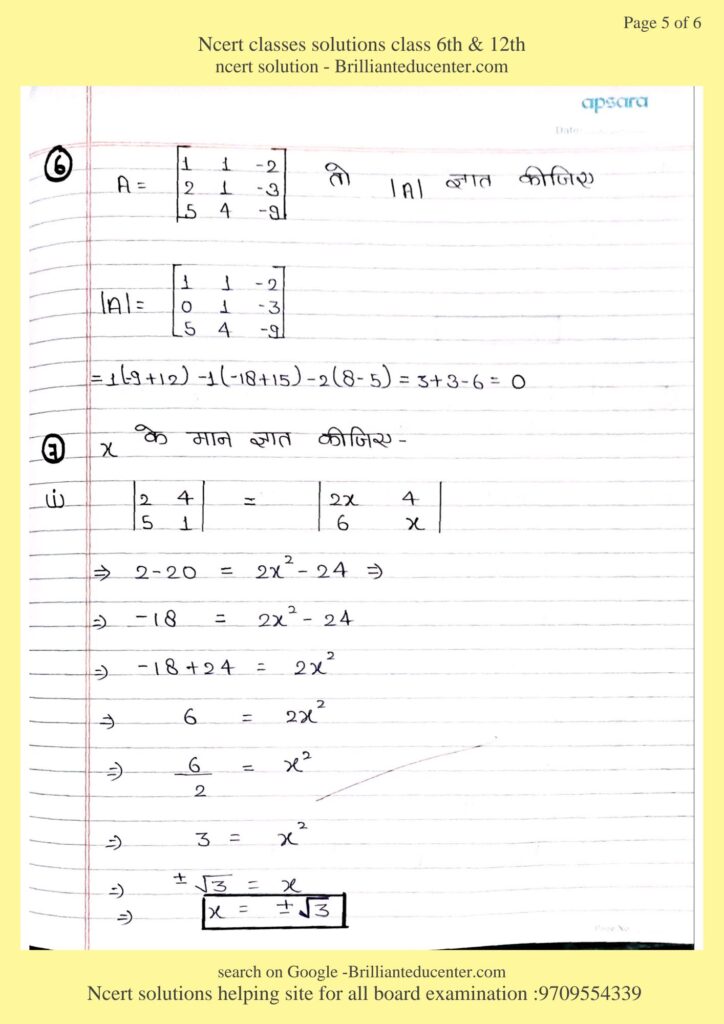 Page 5 of 6
Ncert classes solutions class 6th & 12th
ncert solution - Brillianteducenter.com
apsara
Date:
6
A = [1 1 -2
2 1 -3
5 4 -9] तो |A| ज्ञात कीजिए
|A| = [1 1 -2
0 1 -3
5 4 -9]
= 1(-9+12) -1(-18+15) -2(8-5) = 3+3-6 = 0
7 x के मान ज्ञात कीजिए -
i) |2 4| = |2x 4|
|5 1| |6 x|
⇒ 2-20 = 2x² - 24 ⇒
⇒ -18 = 2x² - 24
⇒ -18+24 = 2x²
⇒ 6 = 2x²
⇒ 6/2 = x²
⇒ 3 = x²
⇒ ±√3 = x
⇒ x = ±√3
Page No.
search on Google -Brillianteducenter.com
Ncert solutions helping site for all board examination :9709554339